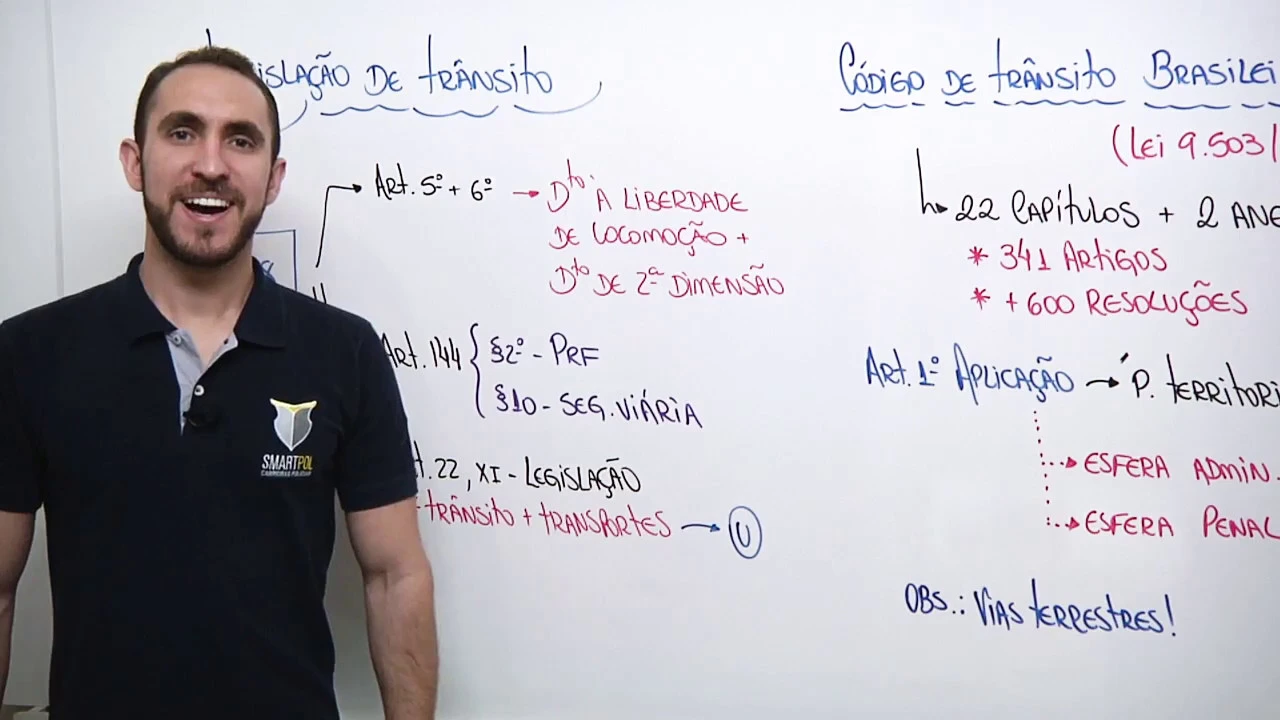 ISLAÇÃO DE TRÂNSITO
ART. 5º + 6º → Dto. À LIBERDADE
DE LOCOMOÇÃO +
Dto DE 2ª DIMENSÃO
ART. 144 { §2º - PRF
§10 - SEG. VIÁRIA
T. 22, XI - LEGISLAÇÃO
TRÂNSITO + TRANSPORTES → U
SMARTPOL
CARREIRAS POLICIAIS
CÓDIGO DE TRÂNSITO BRASILEI
(LEI 9.503/
22 CAPÍTULOS + 2 ANE
* 341 ARTIGOS
* + 600 RESOLUÇÕES
ART. 1º APLICAÇÃO → P. TERRITORI
ESFERA ADMIN.
ESFERA PENAL
OBS.: VIAS TERRESTRES!